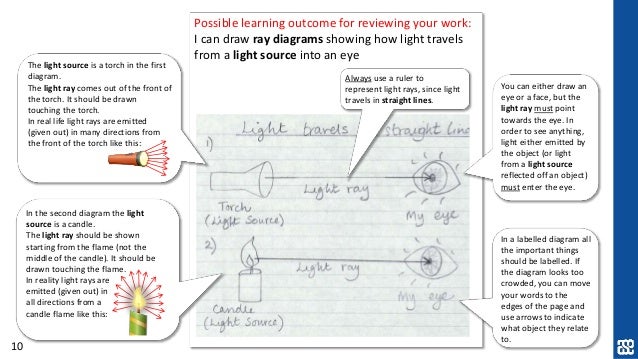 Possible learning outcome for reviewing your work:
I can draw ray diagrams showing how light travels
from a light source into an eye
The light source is a torch in the first
diagram.
The light ray comes out of the front of
the torch. It should be drawn
touching the torch.
In real life light rays are emitted
(given out) in many directions from
the front of the torch like this:
Always use a ruler to
represent light rays, since light
travels in straight lines.
You can either draw an
eye or a face, but the
light ray must point
towards the eye. In
order to see anything,
light either emitted by
the object (or light
from a light source
reflected off an object)
must enter the eye.
Light travels straight line
1)
Light ray
Torch
(Light Source)
My eye
2)
Light ray
Candle
(Light Source)
My eye
In the second diagram the light
source is a candle.
The light ray should be shown
starting from the flame (not the
middle of the candle). It should be
drawn touching the flame.
In reality light rays are
emitted (given out) in
all directions from a
candle flame like this:
In a labelled diagram all
the important things
should be labelled. If
the diagram looks too
crowded, you can move
your words to the
edges of the page and
use arrows to indicate
what object they relate
to.
10